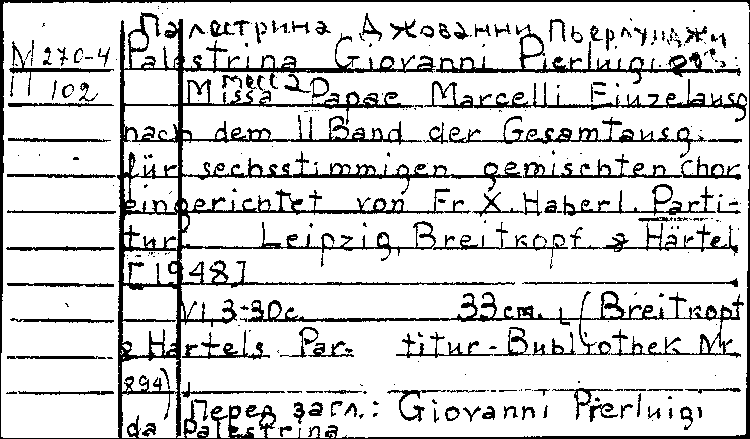 Палестрина Джованни Пьерлуиджи
М 270-4 Palestrina Giovanni Pierluigi
П 102 Missa Papae Marcelli Einzelausg
месса
nach dem II Band der Gesamtausg.
für sechsstimmigen gemischten Chor
eingerichtet von Fr. X. Haberl. Parti-
tur. Leipzig, Breitkopf & Härtel
[1948]
VI, 3-30 c. 33 cm. (Breitkopf
& Hartels Par- titur-Bubliothek Nr.
894)
Перед загл.: Giovanni Pierluigi
da Palestrina